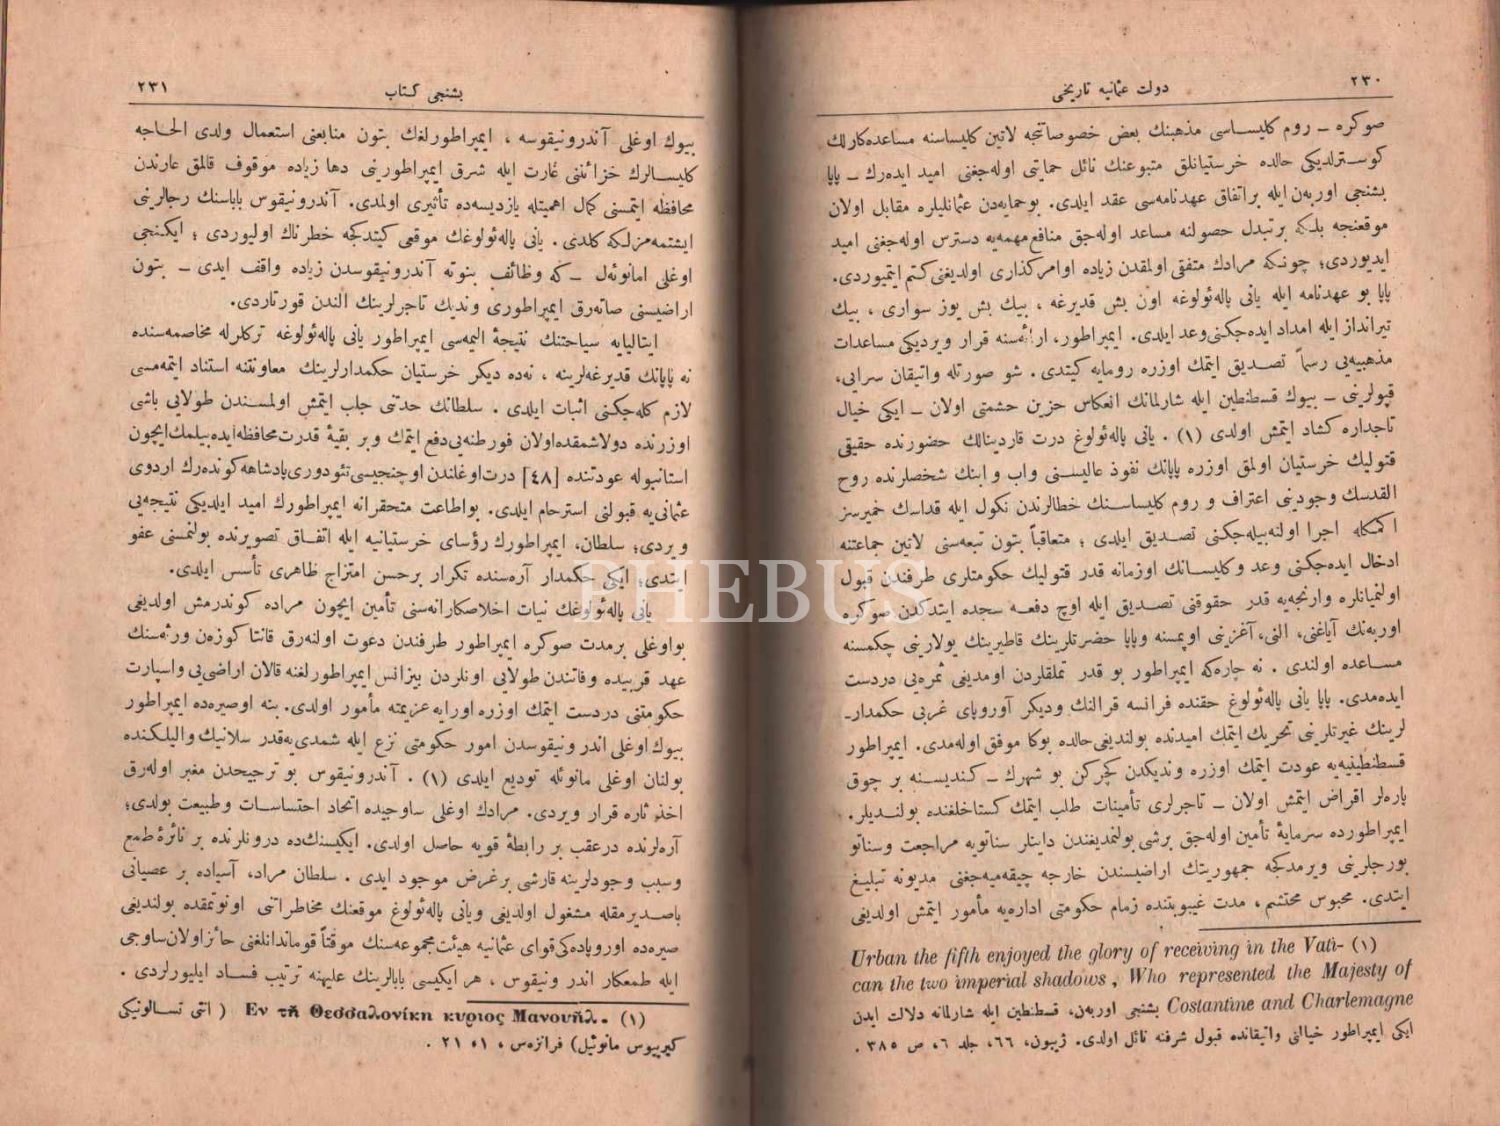 ٢٣٠
دولت عثمانیه تاریخی
صوكره ـ روم كلیساسی مذهبنك بعض خصوصاتنجه لاتین كلیساسنه مساعده‌كارلك
كوسترلدیكی حالده خرستیانلق متبوعنك نائل حمایتی اوله‌جغنی امید ایده‌رك ـ پاپا
بشنجی اوربه‌ن ایله براتفاق عهدنامه‌سی عقد ایلدی. بوحمایه‌دن عثمانلیلره مقابل اولان
موقعنجه بلكه برتبدل حصولنه مساعد اوله‌جق منافع‌مهمه‌یه دسترس اوله‌جغنی امید
ایدیوردی؛ چونكه مرادك متفقی اولمقدن زیاده اوامركذاری اولدیغنی كتم ایتمیوردی.
پاپا بو عهدنامه ایله یانی پاله‌ئولوغه اون بش قدیرغه ، بیك بش یوز سواری ، بیك
تیرانداز ایله امداد ایده‌جكنی وعد ایلدی. ایمپراطور، ارائه‌سنه قرار ویردیكی مساعدات
مذهبیه‌یی رسماً تصدیق ایتمك اوزره رومایه كیتدی. شو صورتله واتیقان سرایی،
قپولرینی ـ بیوك قسطنطین ایله شارلمانك انعكاس حزین حشمتی اولان ـ ایكی خیال
تاجداره كشاد ایتمش اولدی (١) . یانی پاله‌ئولوغ درت قاردینالك حضورنده حقیقی
قتولیك خرستیان اولمق اوزره پاپانك نفوذ عالیسنی واب و ابنك شخصلرنده روح
القدسك وجودینی اعتراف و روم كلیساسنك خطالرندن نكول ایله قداسك خمیرسز
اكمكله اجرا اولنه‌بیله‌جكنی تصدیق ایلدی ؛ متعاقباً بتون تبعه‌سنی لاتین جماعتنه
ادخال ایده‌جكنی وعد وكلیسانك اوزمانه قدر قتولیك حكومتلری طرفندن قبول
اولنمیانلره وارنجه‌یه قدر حقوقنی تصدیق ایله اوچ دفعه سجده ایتدكدن صوكره
اوربه‌نك آیاغنی، النی، آغزینی اوپمسنه وپاپا حضرتلرینك قاطیرینك یولارینی چكمسنه
مساعده اولندی . نه چاره‌كه ایمپراطور بو قدر تملقلردن اومدیغی ثمره‌یی دردست
ایده‌مدی. پاپا یانی پاله‌ئولوغ حقنده فرانسه قرالنك ودیكر آوروپای غربی حكمدار‌ـ
لرینك غیرتلرینی تحریك ایتمك امیدنده بولندیغی حالده بوكا موفق اوله‌مدی. ایمپراطور
قسطنطینیه‌یه عودت ایتمك اوزره وندیكدن كچركن بو شهرك ـ كندیسنه بر چوق
پاره‌لر اقراض ایتمش اولان ـ تاجرلری تأمینات طلب ایتمك كستاخلغنده بولندیلر.
ایمپراطورده سرمایهٔ تأمین اوله‌جق برشی بولنمدیغندن داینلر سناتویه مراجعت وسناتو
بورجلرینی ویرمدكجه جمهوریتك اراضیسندن خارجه چیقه‌میه‌جغنی مدیونه تبلیغ
ایتدی. محبوس محتشم ، مدت غیبوبتنده زمام حكومتی اداره‌یه مأمور ایتمش اولدیغی
(١) Urban the fifth enjoyed the glory of receiving in the Vati-
can the two imperial shadows , Who represented the Majesty of
Costantine and Charlemagne بشنجی اوربه‌ن، قسطنطین ایله شارلمانه دلالت ایدن
ایكی ایمپراطور خیالنی واتیقانده قبول شرفنه نائل اولدی. ژیبون، ٦٦، جلد ٦، ص ٣٨٥ .
٢٣١
بشنجی كتاب
بیوك اوغلی آندرونیقوسه ، ایمپراطورلغك بتون منابعنی استعمال ولدی الحاجه
كلیسالرك خزائننی غارت ایله شرق ایمپراطورینی دها زیاده موقوف قالمق عارندن
محافظه ایتمسنی كمال اهمیتله یازدیسه‌ده تأثیری اولمدی. آندرونیقوس باباسنك رجالرینی
ایشتمه‌مزلكه كلدی . یانی پاله‌ئولوغك موقعی كیتدكجه خطرناك اولیوردی ؛ ایكنجی
اوغلی امانوئه‌ل ـ كه وظائف بنوته آندرونیقوسدن زیاده واقف ایدی ـ بتون
اراضیسنی صاته‌رق ایمپراطوری وندیك تاجرلرینك الندن قورتاردی.
ایتالیایه سیاحتنك نتیجهٔ الیمه‌سی ایمپراطور یانی پاله‌ئولوغه تركلرله مخاصمه‌سنده
نه پاپانك قدیرغه‌لرینه ، نه‌ده دیكر خرستیان حكمدارلرینك معاونتنه استناد ایتمه‌مسی
لازم كله‌جكنی اثبات ایلدی . سلطانك حدتنی جلب ایتمش اولمسندن طولایی باشی
اوزرنده دولاشمقده‌اولان فورطنه‌یی‌دفع ایتمك وبر بقیهٔ قدرت‌محافظه‌ایده‌بیلمك‌ایچون
استانبوله عودتنده [٤٨] درت‌اوغلندن اوچنجیسی‌تئودوری‌پادشاهه‌كوندەرك اردوی
عثمانی‌یه قبولنی استرحام ایلدی. بواطاعت متحقرانه ایمپراطورك امید ایلدیكی نتیجه‌یی
ویردی؛ سلطان، ایمپراطورك رؤسای خرستیانیه ایله اتفاق تصویرنده بولنمسنی عفو
ایتدی؛ ایكی حكمدار آره‌سنده تكرار برحسن امتزاج ظاهری تأسس ایلدی.
یانی پاله‌ئولوغك نیات اخلاصكارانه‌سنی تأمین ایچون مراده كوندرمش اولدیغی
بواوغلی برمدت صوكره ایمپراطور طرفندن دعوت اولنه‌رق قانتاكوزه‌ن ورثه‌سنك
عهد قریبده وفاتندن طولایی اونلردن بیزانس ایمپراطورلغنه قالان اراضی‌یی واسپارت
حكومتنی دردست ایتمك اوزره اورایه عزیمته مأمور اولدی. ینه اوصیره‌ده ایمپراطور
بیوك‌اوغلی اندرونیقوسدن امور حكومتی نزع ایله شمدی‌یه‌قدر سلانیك والیلكنده
بولنان اوغلی مانوئله تودیع ایلدی (١) . آندرونیقوس بو ترجیحدن مغبر اوله‌رق
اخذ ثاره قرار ویردی. مرادك اوغلی ساوجیده اتحاد احتساسات وطبیعت بولدی؛
آره‌لرنده درعقب بر رابطهٔ قویه حاصل اولدی. ایكیسنك‌ده درونلرنده بر نائرهٔ طمع
وسبب وجودلرینه قارشی برغرض موجود ایدی . سلطان مراد، آسیاده بر عصیانی
باصدیرمقله مشغول اولدیغی ویانی پاله‌ئولوغ موقعنك مخاطراتنی اونوتمقده بولندیغی
صیره‌ده اوروپاده‌كی‌قوای عثمانیه هیئت‌مجموعه‌سنك موقتاً قومانداتلغنی حائزاولان‌ساوجی
ایله طمعكار اندرونیقوس ، هر ایكیسی بابالرینك علیهنه ترتیب فساد ایلیورلردی .
(١) Εν τῇ Θεσσαλονίκη κυριος Μανουὴλ. ( انتی تسالونیكی
كیریوس مانوئیل) فرانزه‌س ، ١، ٢١ .
PHEBUS